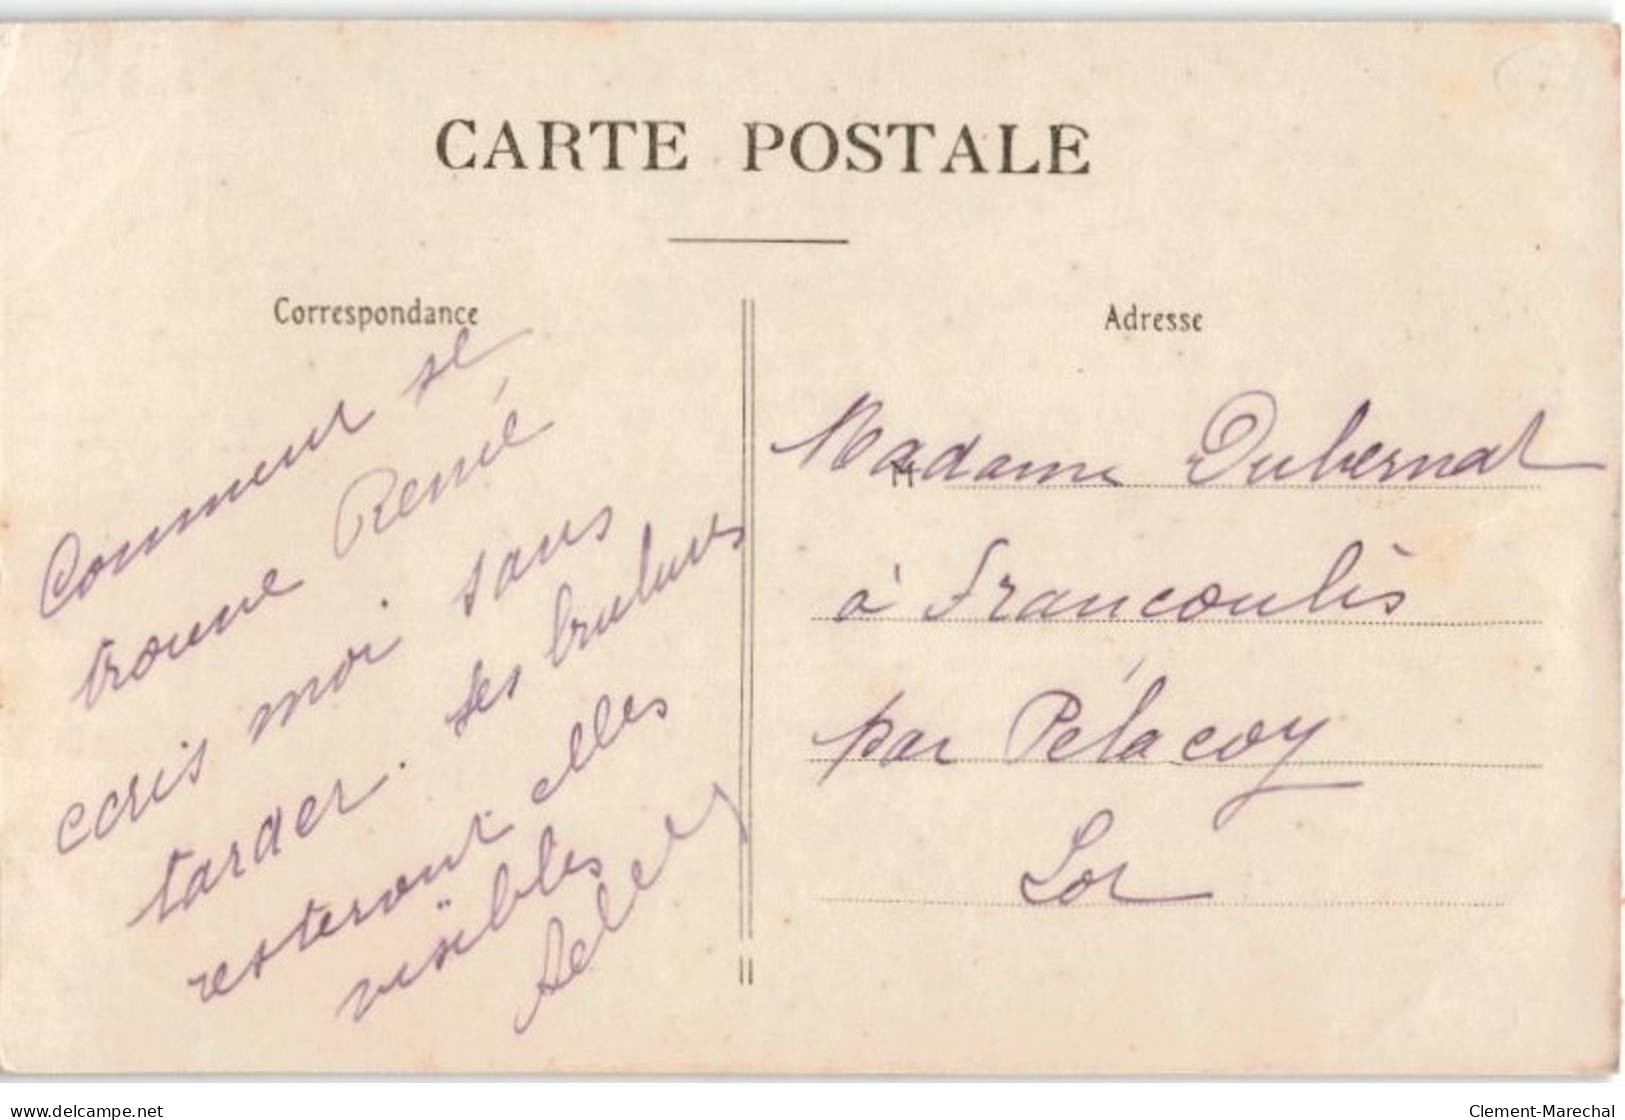 CARTE POSTALE
Correspondance
Comment se
trouve René
ecris moi sans
tarder. ses brulures
resteront elles
visibles
Adresse
M
Madame Dubernat
à Francoulès
par Pélacoy
Lot
delcampe.net
Clement-Marechal